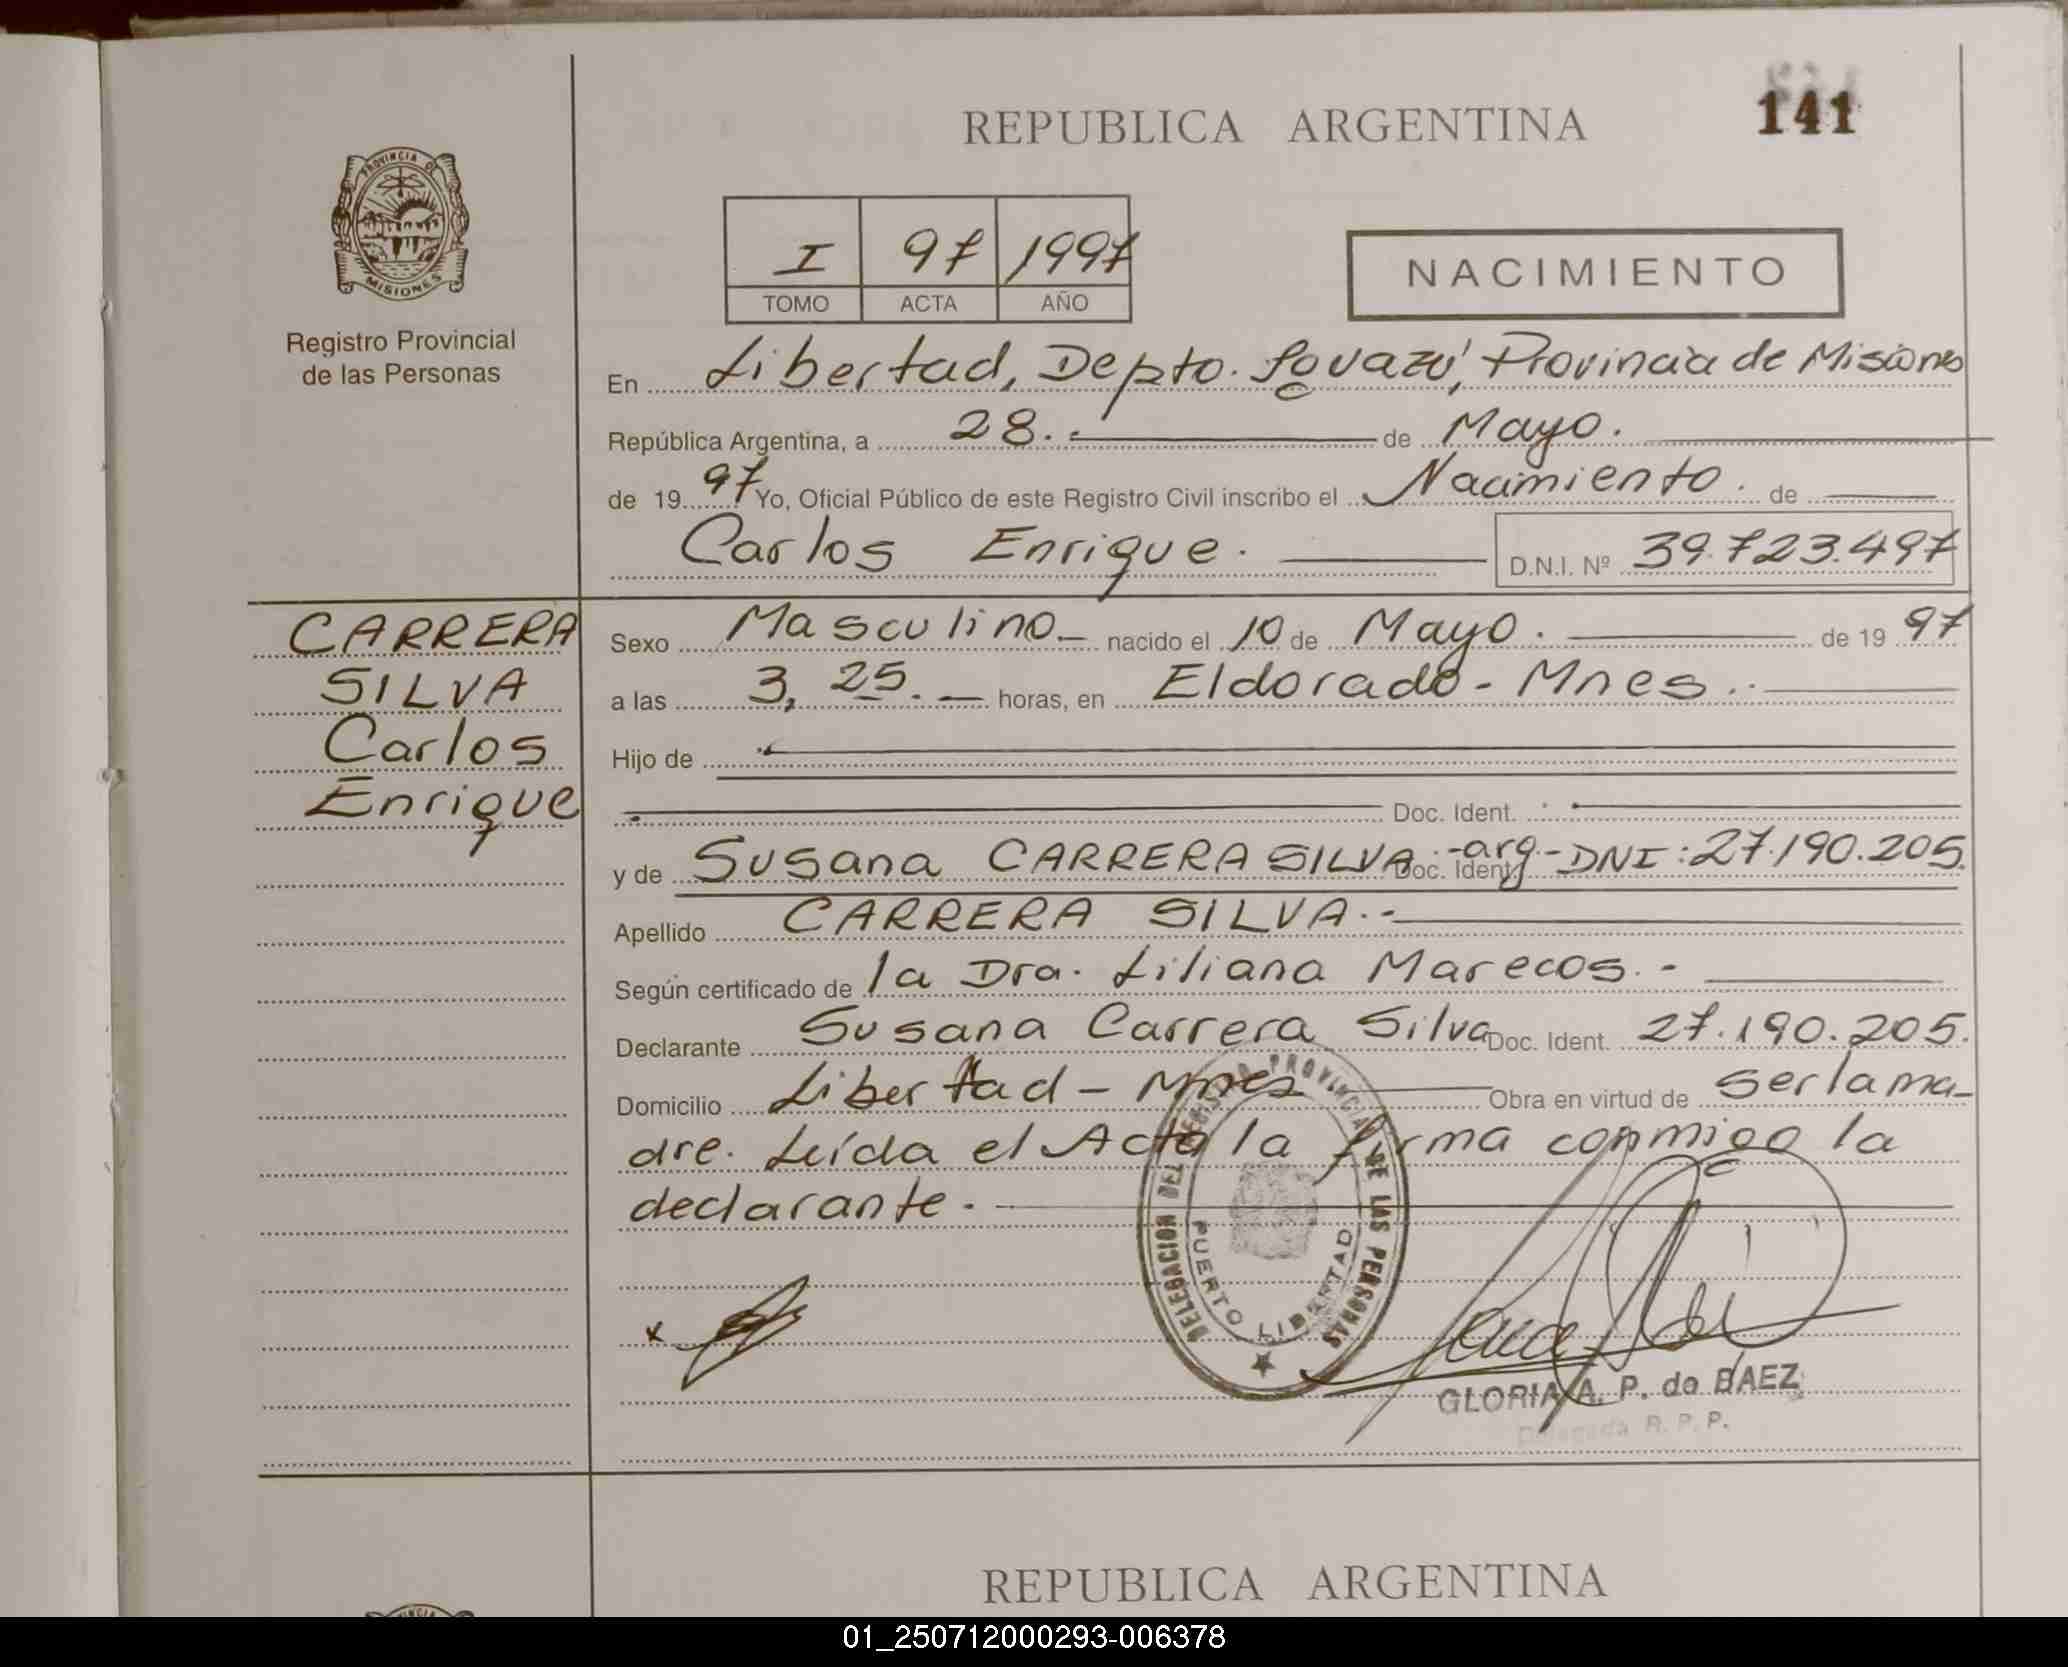 141
REPUBLICA ARGENTINA
PROVINCIA DE
MISIONES
Registro Provincial
de las Personas
I 97 1997
TOMO ACTA AÑO
NACIMIENTO
En Libertad, Depto. Iguazú, Provincia de Misiones
República Argentina, a 28. de Mayo.
de 1997 Yo, Oficial Público de este Registro Civil inscribo el Nacimiento. de
Carlos Enrique. D.N.I. Nº 39.723.497
CARRERA
SILVA
Carlos
Enrique
Sexo Masculino nacido el 10 de Mayo. de 1997
a las 3,25. horas, en Eldorado - Mnes.
Hijo de
Doc. Ident.
y de Susana CARRERA SILVA Doc. Ident. -arg- DNI: 27.190.205.
Apellido CARRERA SILVA.-
Según certificado de la Dra. Liliana Marecos.-
Declarante Susana Carrera Silva Doc. Ident. 27.190.205.
Domicilio Libertad - Mnes Obra en virtud de ser la ma-
dre. Leída el Acta la firma conmigo la
declarante.
x
DELEGACION DEL REGISTRO PROVINCIAL DE LAS PERSONAS
PUERTO LIBERTAD
GLORIA A. P. de BAEZ
Delegada R. P. P.
REPUBLICA ARGENTINA
01_250712000293-006378